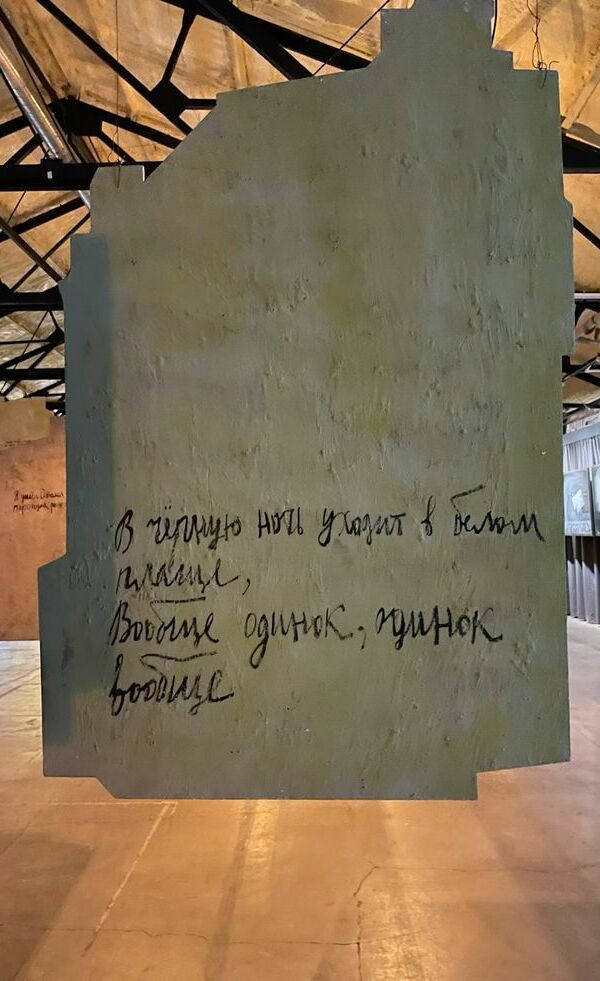 В чёрную ночь уходит в белом
плаще,
Вообще одинок, одинок
вообще
Я ушёл